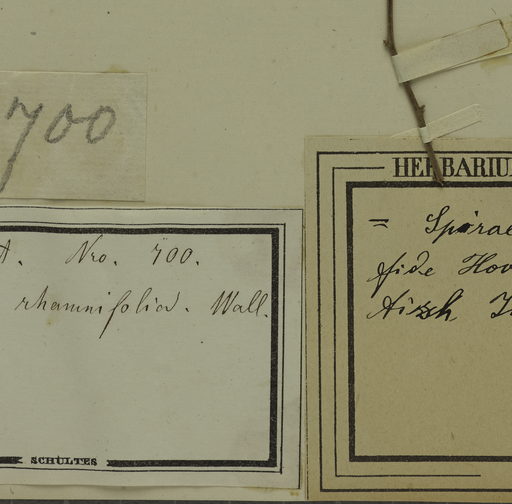 700
A. Nro. 700.
rhamnifolia. Wall.
SCHULTES
HERBARIU
= Spirae
fide Hoo